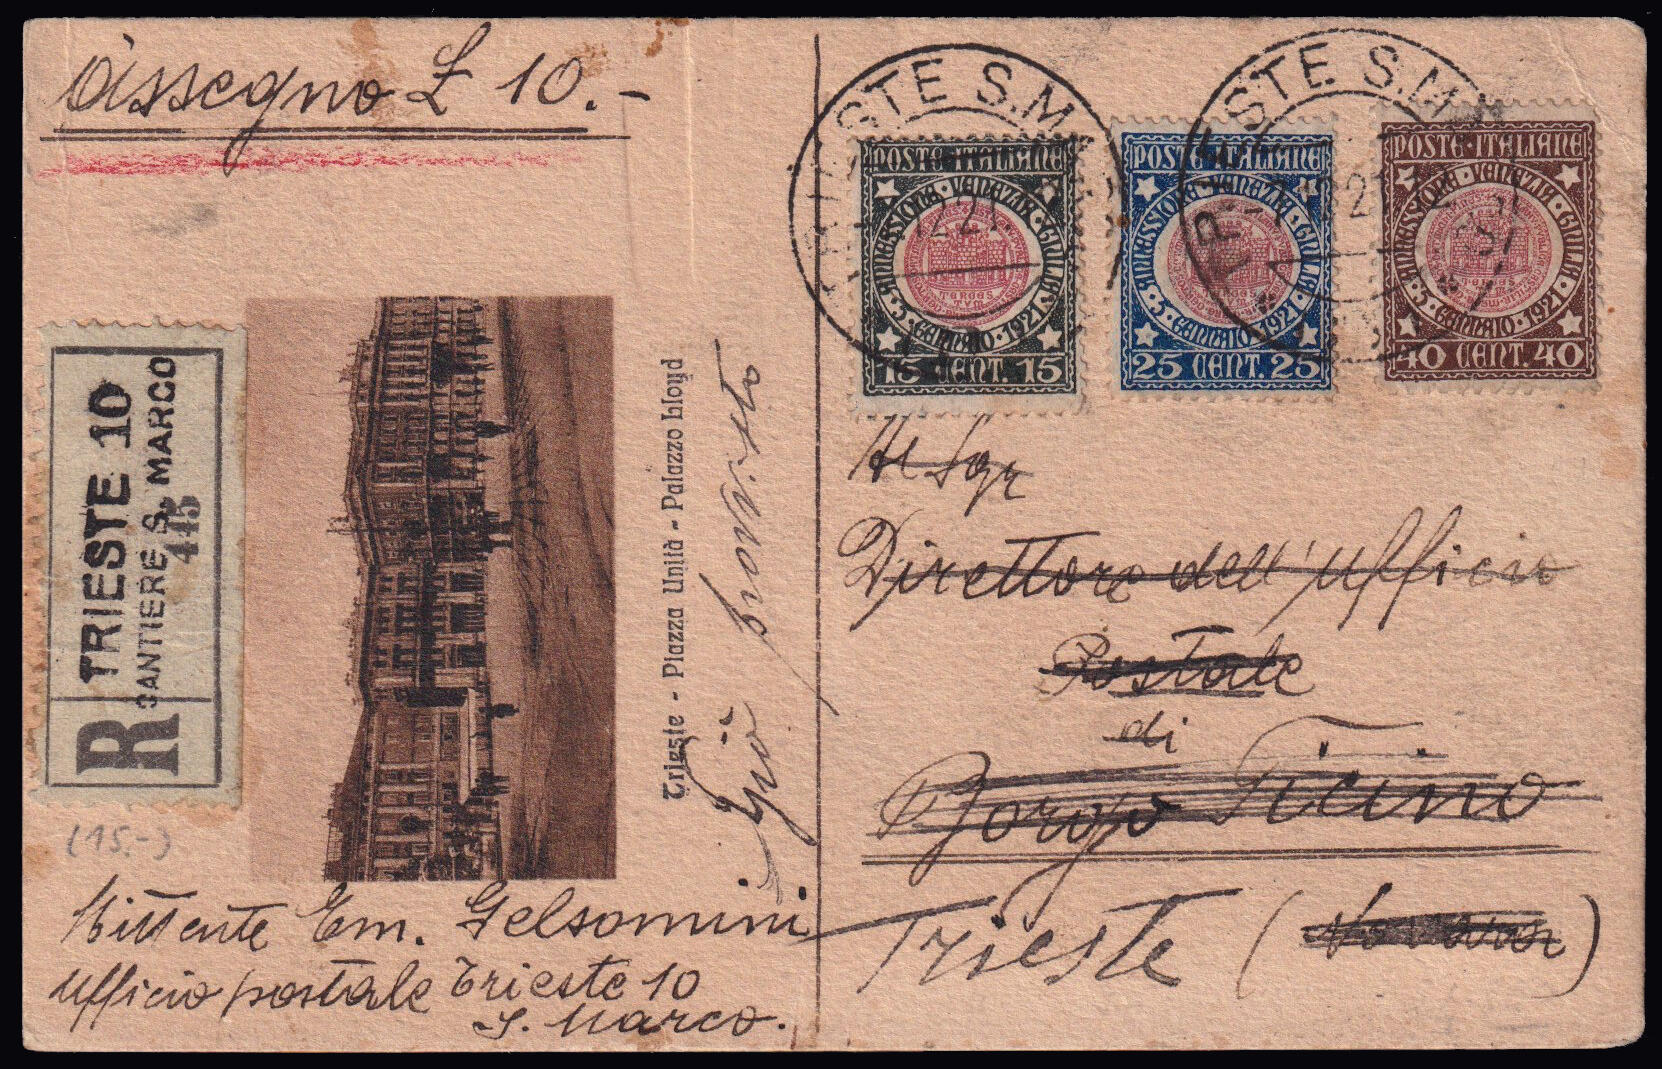 Assegno £ 10.-
TRIESTE S.MARCO
TRIESTE S.M
POSTE·ITALIANE
ANNESSIONE·VENEZIA·GIULIA·
·5·GENNAIO·1921·
TERGES
TVM
15 CENT. 15
POSTE·ITALIANE
ANNESSIONE·VENEZIA·GIULIA·
·5·GENNAIO·1921·
25 CENT. 25
POSTE·ITALIANE
ANNESSIONE·VENEZIA·GIULIA·
·5·GENNAIO·1921·
40 CENT. 40
R
TRIESTE 10
CANTIERE S. MARCO
445
Trieste - Piazza Unità - Palazzo Lloyd
(15.-)
Mittente Em. Gelsomini
Ufficio postale Trieste 10
S. Marco.
Al Sgr
Direttore dell'Ufficio
Postale
di
Borgo Ticino
Trieste (Novara)